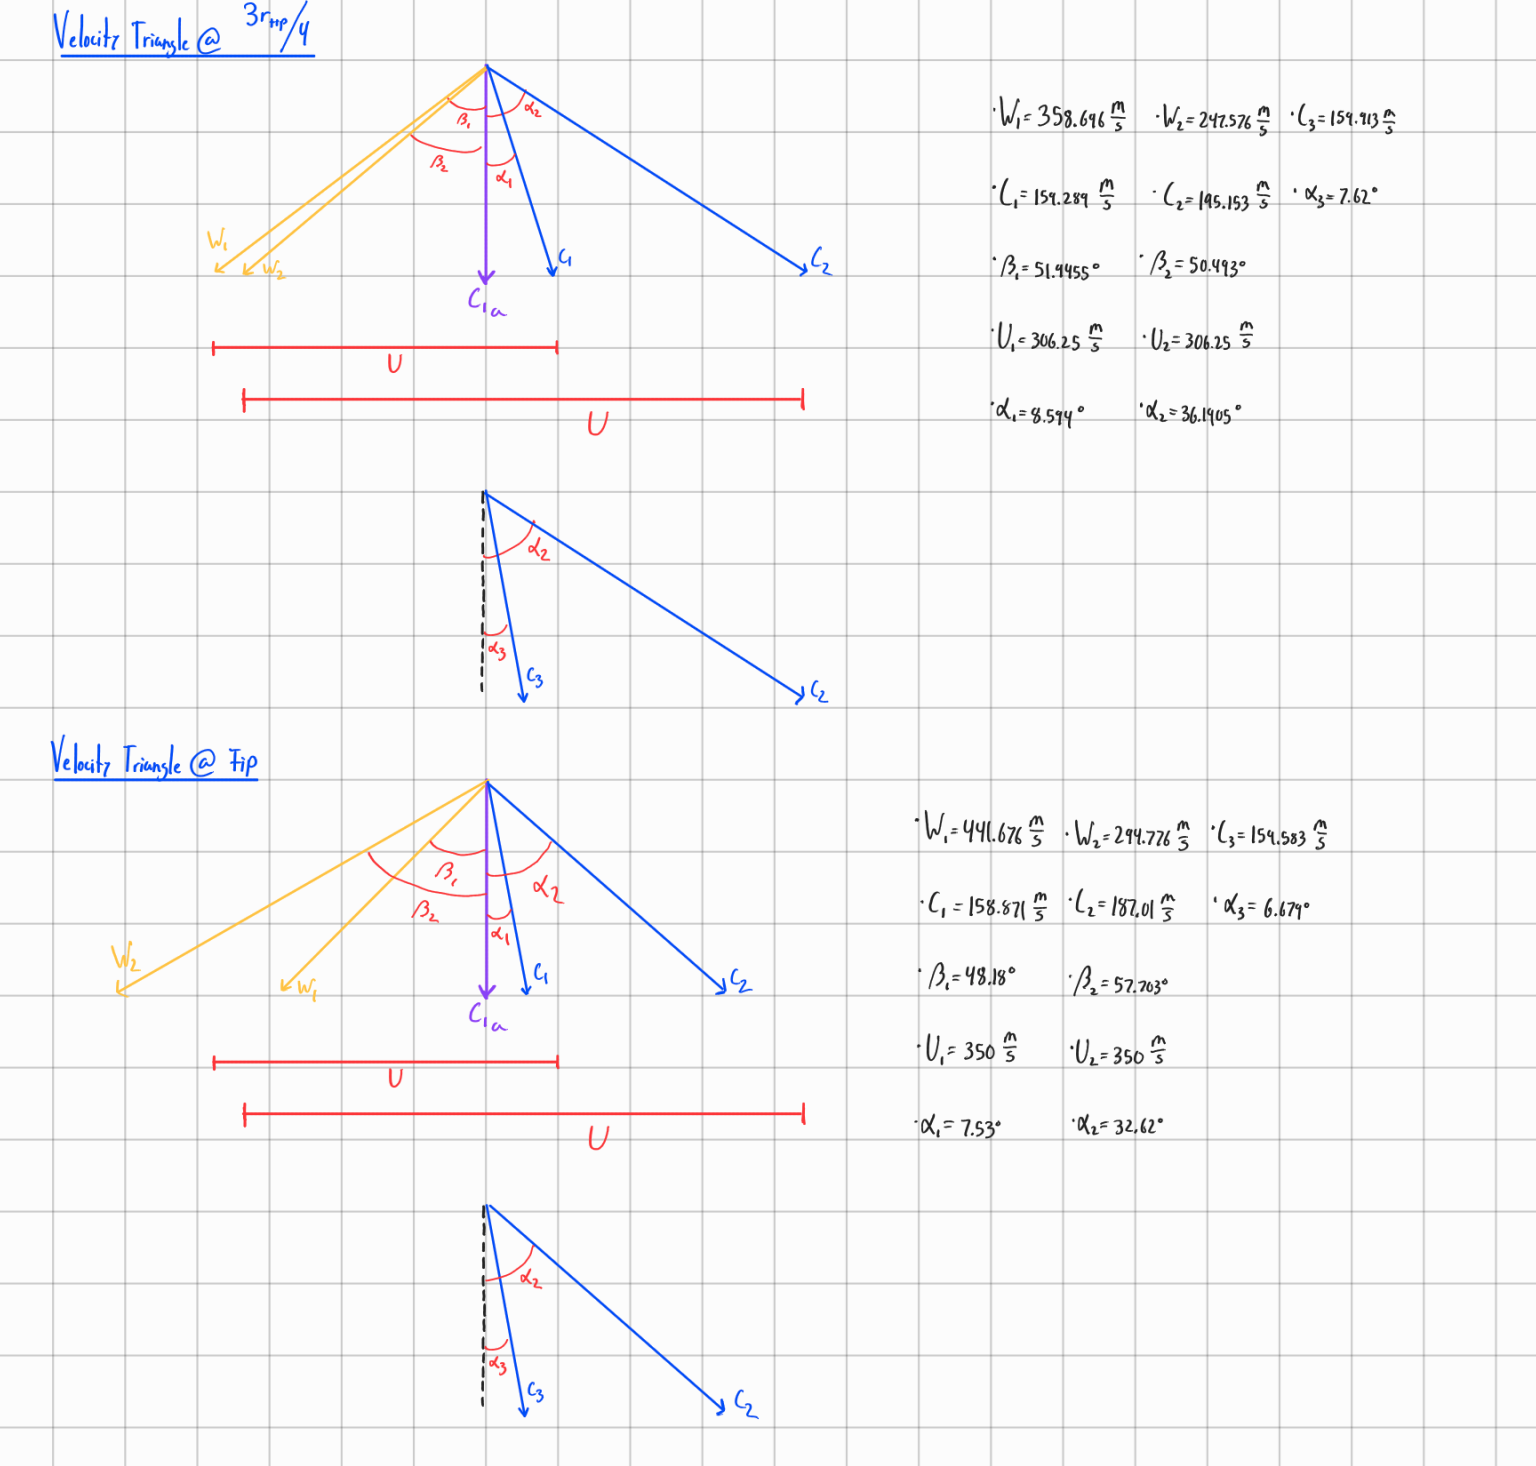 Velocity Triangle @ 3r_tip/4
β₁ α₂
β₂ α₁
W₁ W₂ C₁ C₂
C₁ₐ
U
U
·W₁= 358.696 m/s ·W₂= 247.576 m/s ·C₃= 159.913 m/s
·C₁= 159.289 m/s ·C₂= 195.153 m/s ·α₃= 7.62°
·β₁= 51.9455° ·β₂= 50.493°
·U₁= 306.25 m/s ·U₂= 306.25 m/s
·α₁= 8.594° ·α₂= 36.1905°
α₂
α₃
C₃ C₂
Velocity Triangle @ Tip
β₁ α₂
β₂ α₁
W₂ W₁ C₁ C₂
C₁ₐ
U
U
·W₁= 441.676 m/s ·W₂= 294.776 m/s ·C₃= 159.583 m/s
·C₁= 158.871 m/s ·C₂= 187.01 m/s ·α₃= 6.679°
·β₁= 48.18° ·β₂= 57.703°
·U₁= 350 m/s ·U₂= 350 m/s
·α₁= 7.53° ·α₂= 32.62°
α₂
α₃
C₃ C₂